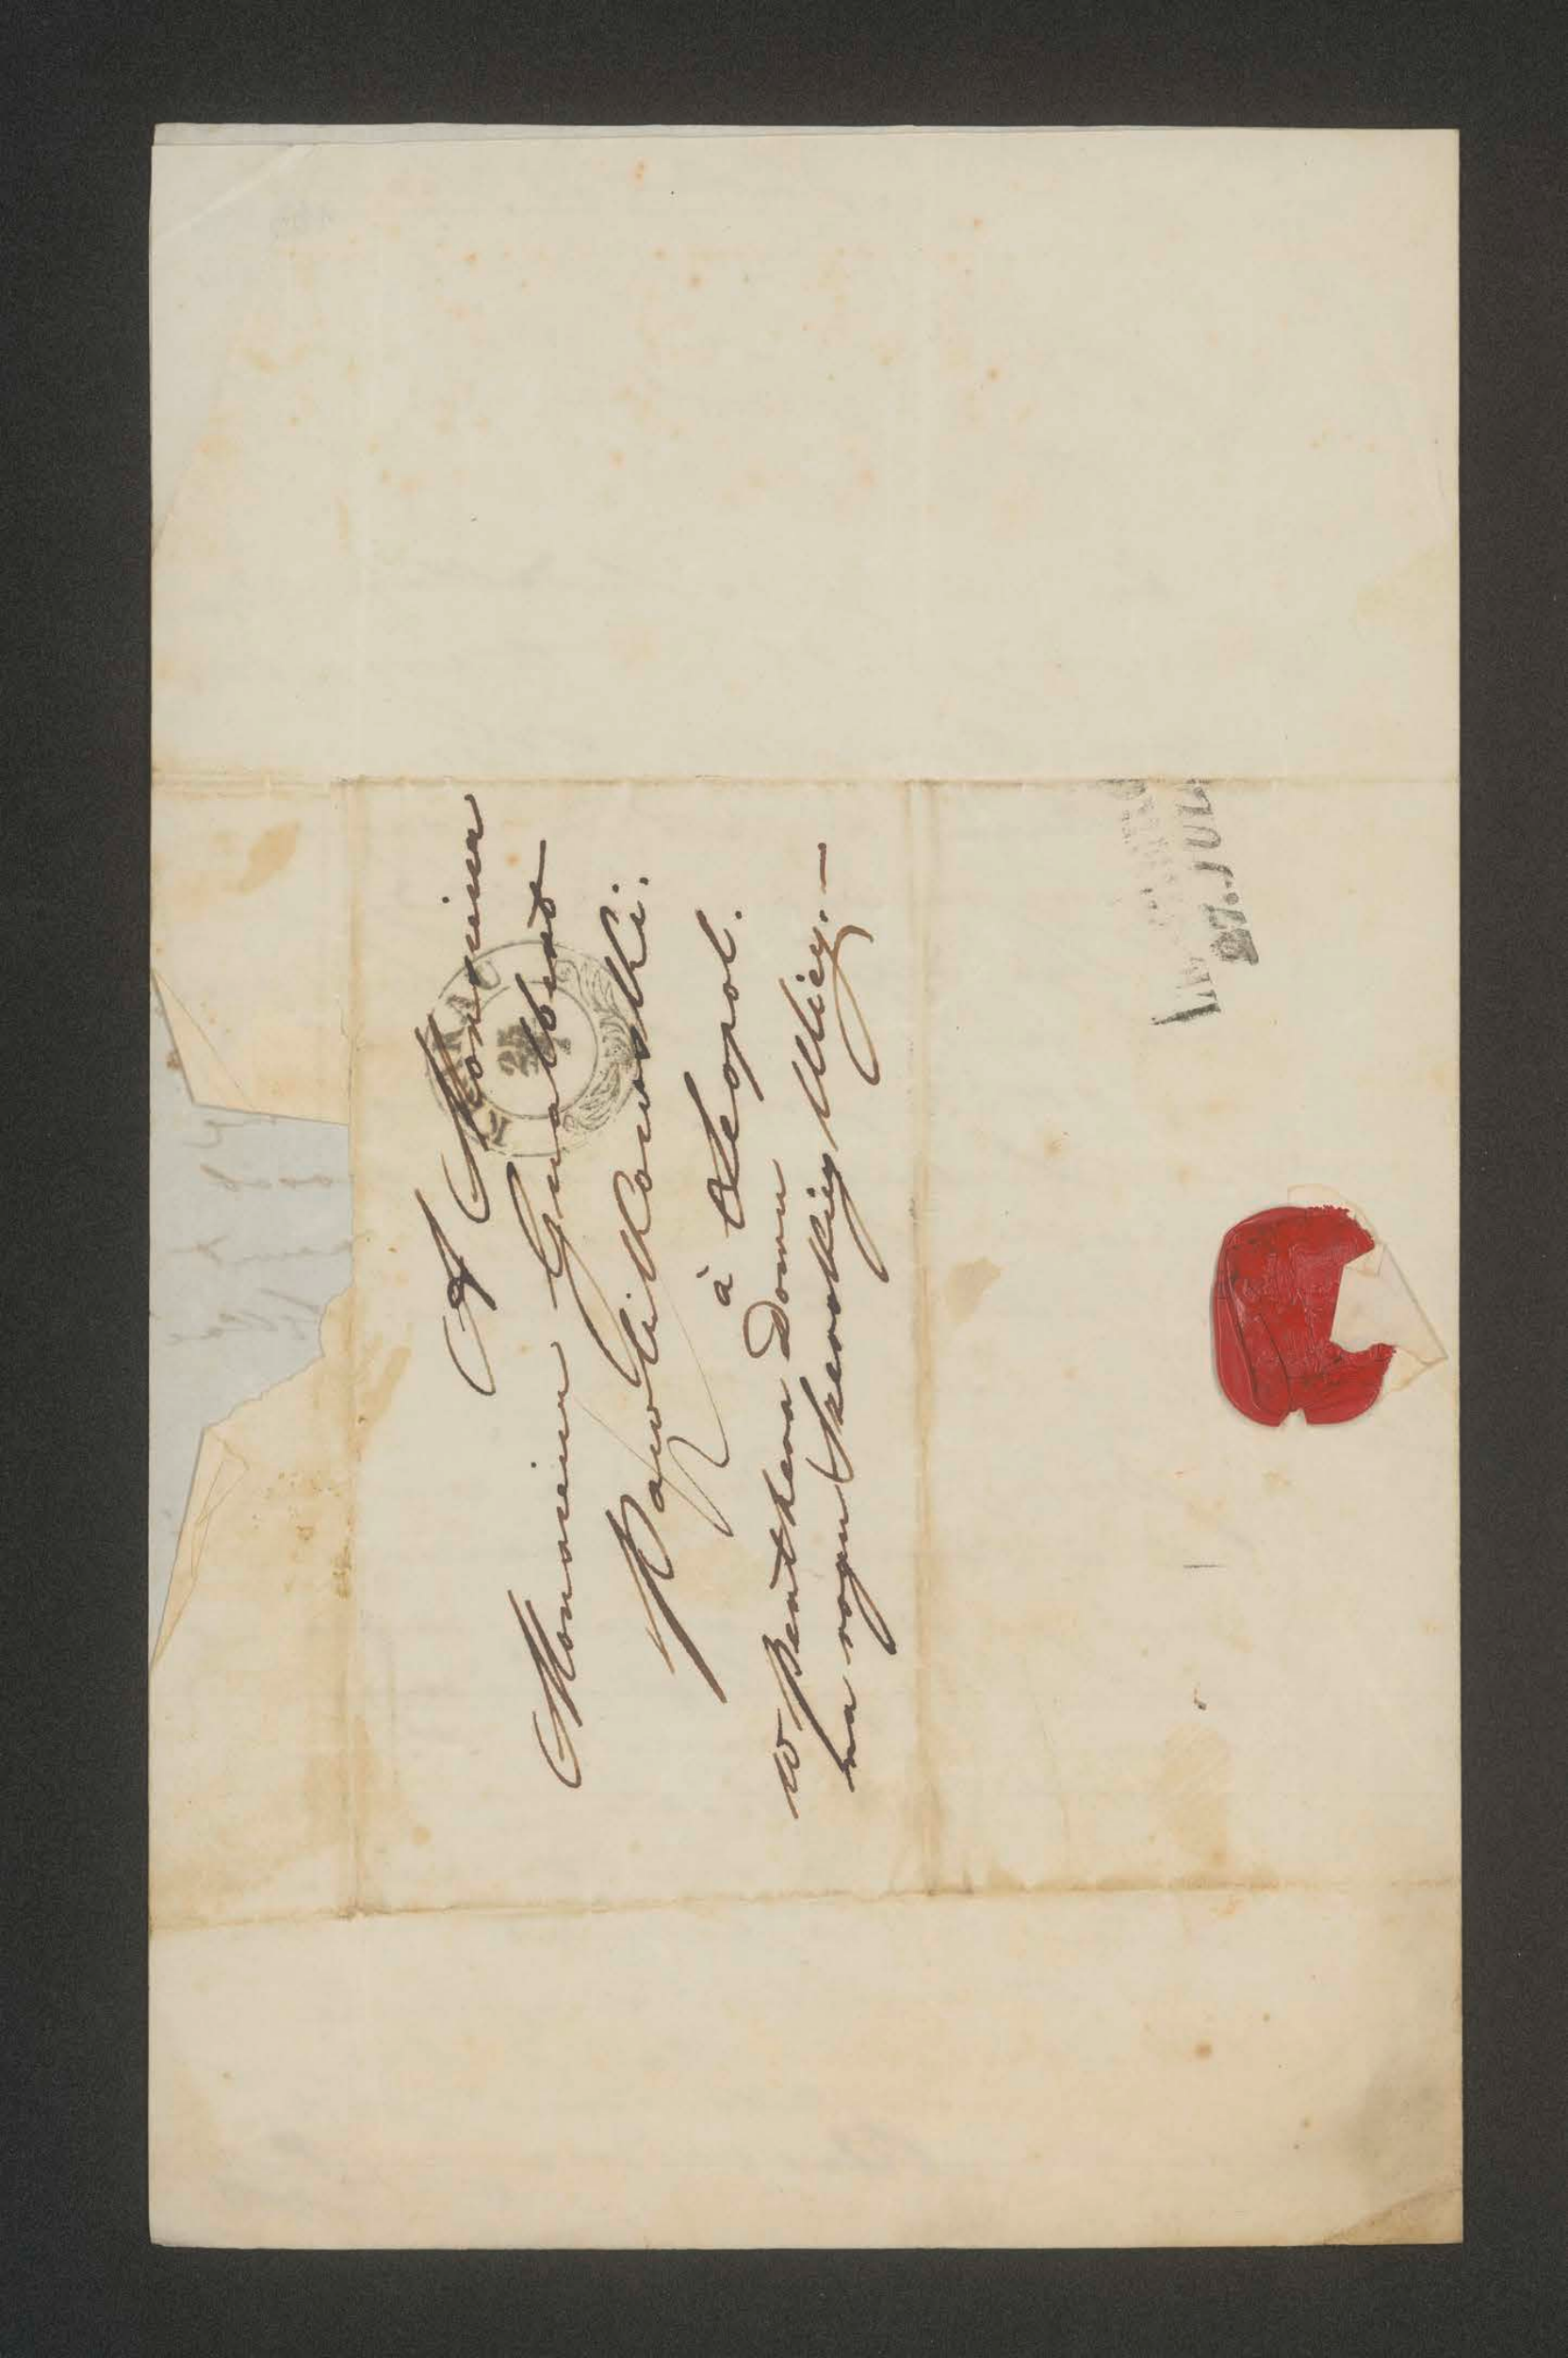 A Monsieur
Monsieur Gwalbert
Pawlikowski.
à Léopol.
w Penthera Domu
na rogu Szerokiey Uliey. —
KRAKAU
25
7
27. JUL